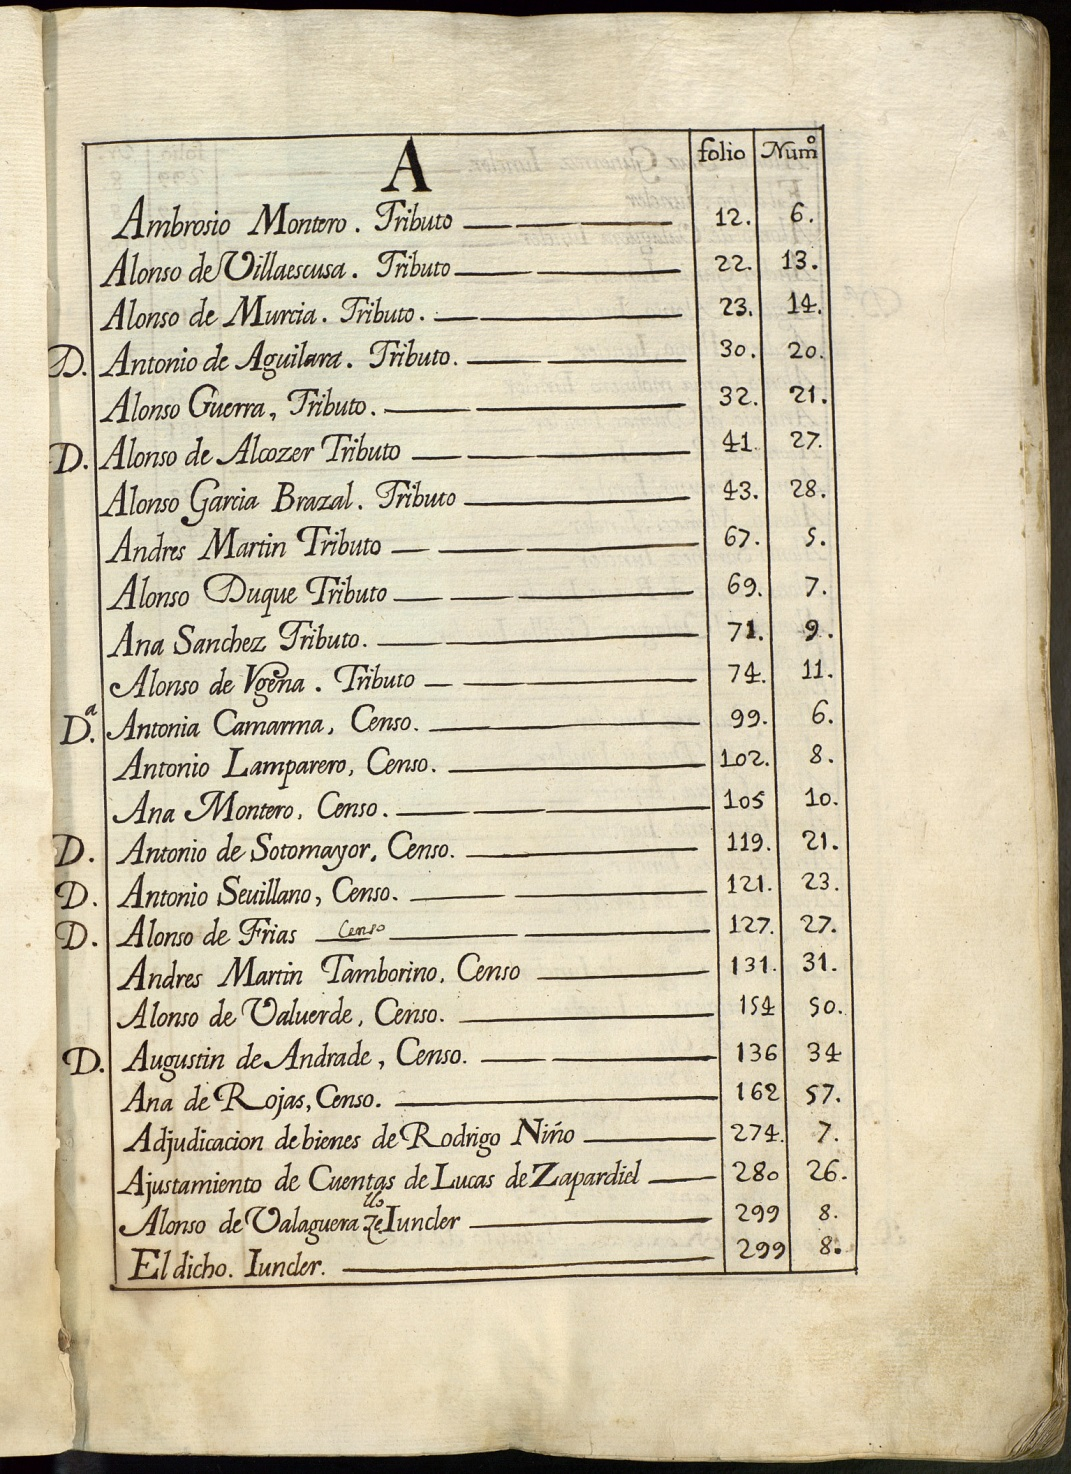 A folio Numº
Ambrosio Montero. Tributo 12. 6.
Alonso de Villaescusa. Tributo 22. 13.
Alonso de Murcia. Tributo. 23. 14.
D. Antonio de Aguilara. Tributo. 30. 20.
Alonso Guerra, Tributo. 32. 21.
D. Alonso de Alcozer Tributo 41. 27.
Alonso Garcia Brazal. Tributo 43. 28.
Andres Martin Tributo 67. 5.
Alonso Duque Tributo 69. 7.
Ana Sanchez Tributo. 71. 9.
Alonso de Vgena. Tributo 74. 11.
D.ª Antonia Camarma, Censo. 99. 6.
Antonio Lamparero, Censo. 102. 8.
Ana Montero, Censo. 105 10.
D. Antonio de Sotomayor, Censo. 119. 21.
D. Antonio Seuillano, Censo. 121. 23.
D. Alonso de Frias Censo 127. 27.
Andres Martin Tamborino, Censo 131. 31.
Alonso de Valuerde, Censo. 154 50.
D. Augustin de Andrade, Censo. 136 34
Ana de Rojas, Censo. 162 57.
Adjudicacion de bienes de Rodrigo Niño 274. 7.
Ajustamiento de Cuentas de Lucas de Zapardiel 280 26.
Alonso de Valaguera Iuncler 299 8.
El dicho. Iuncler. 299 8.